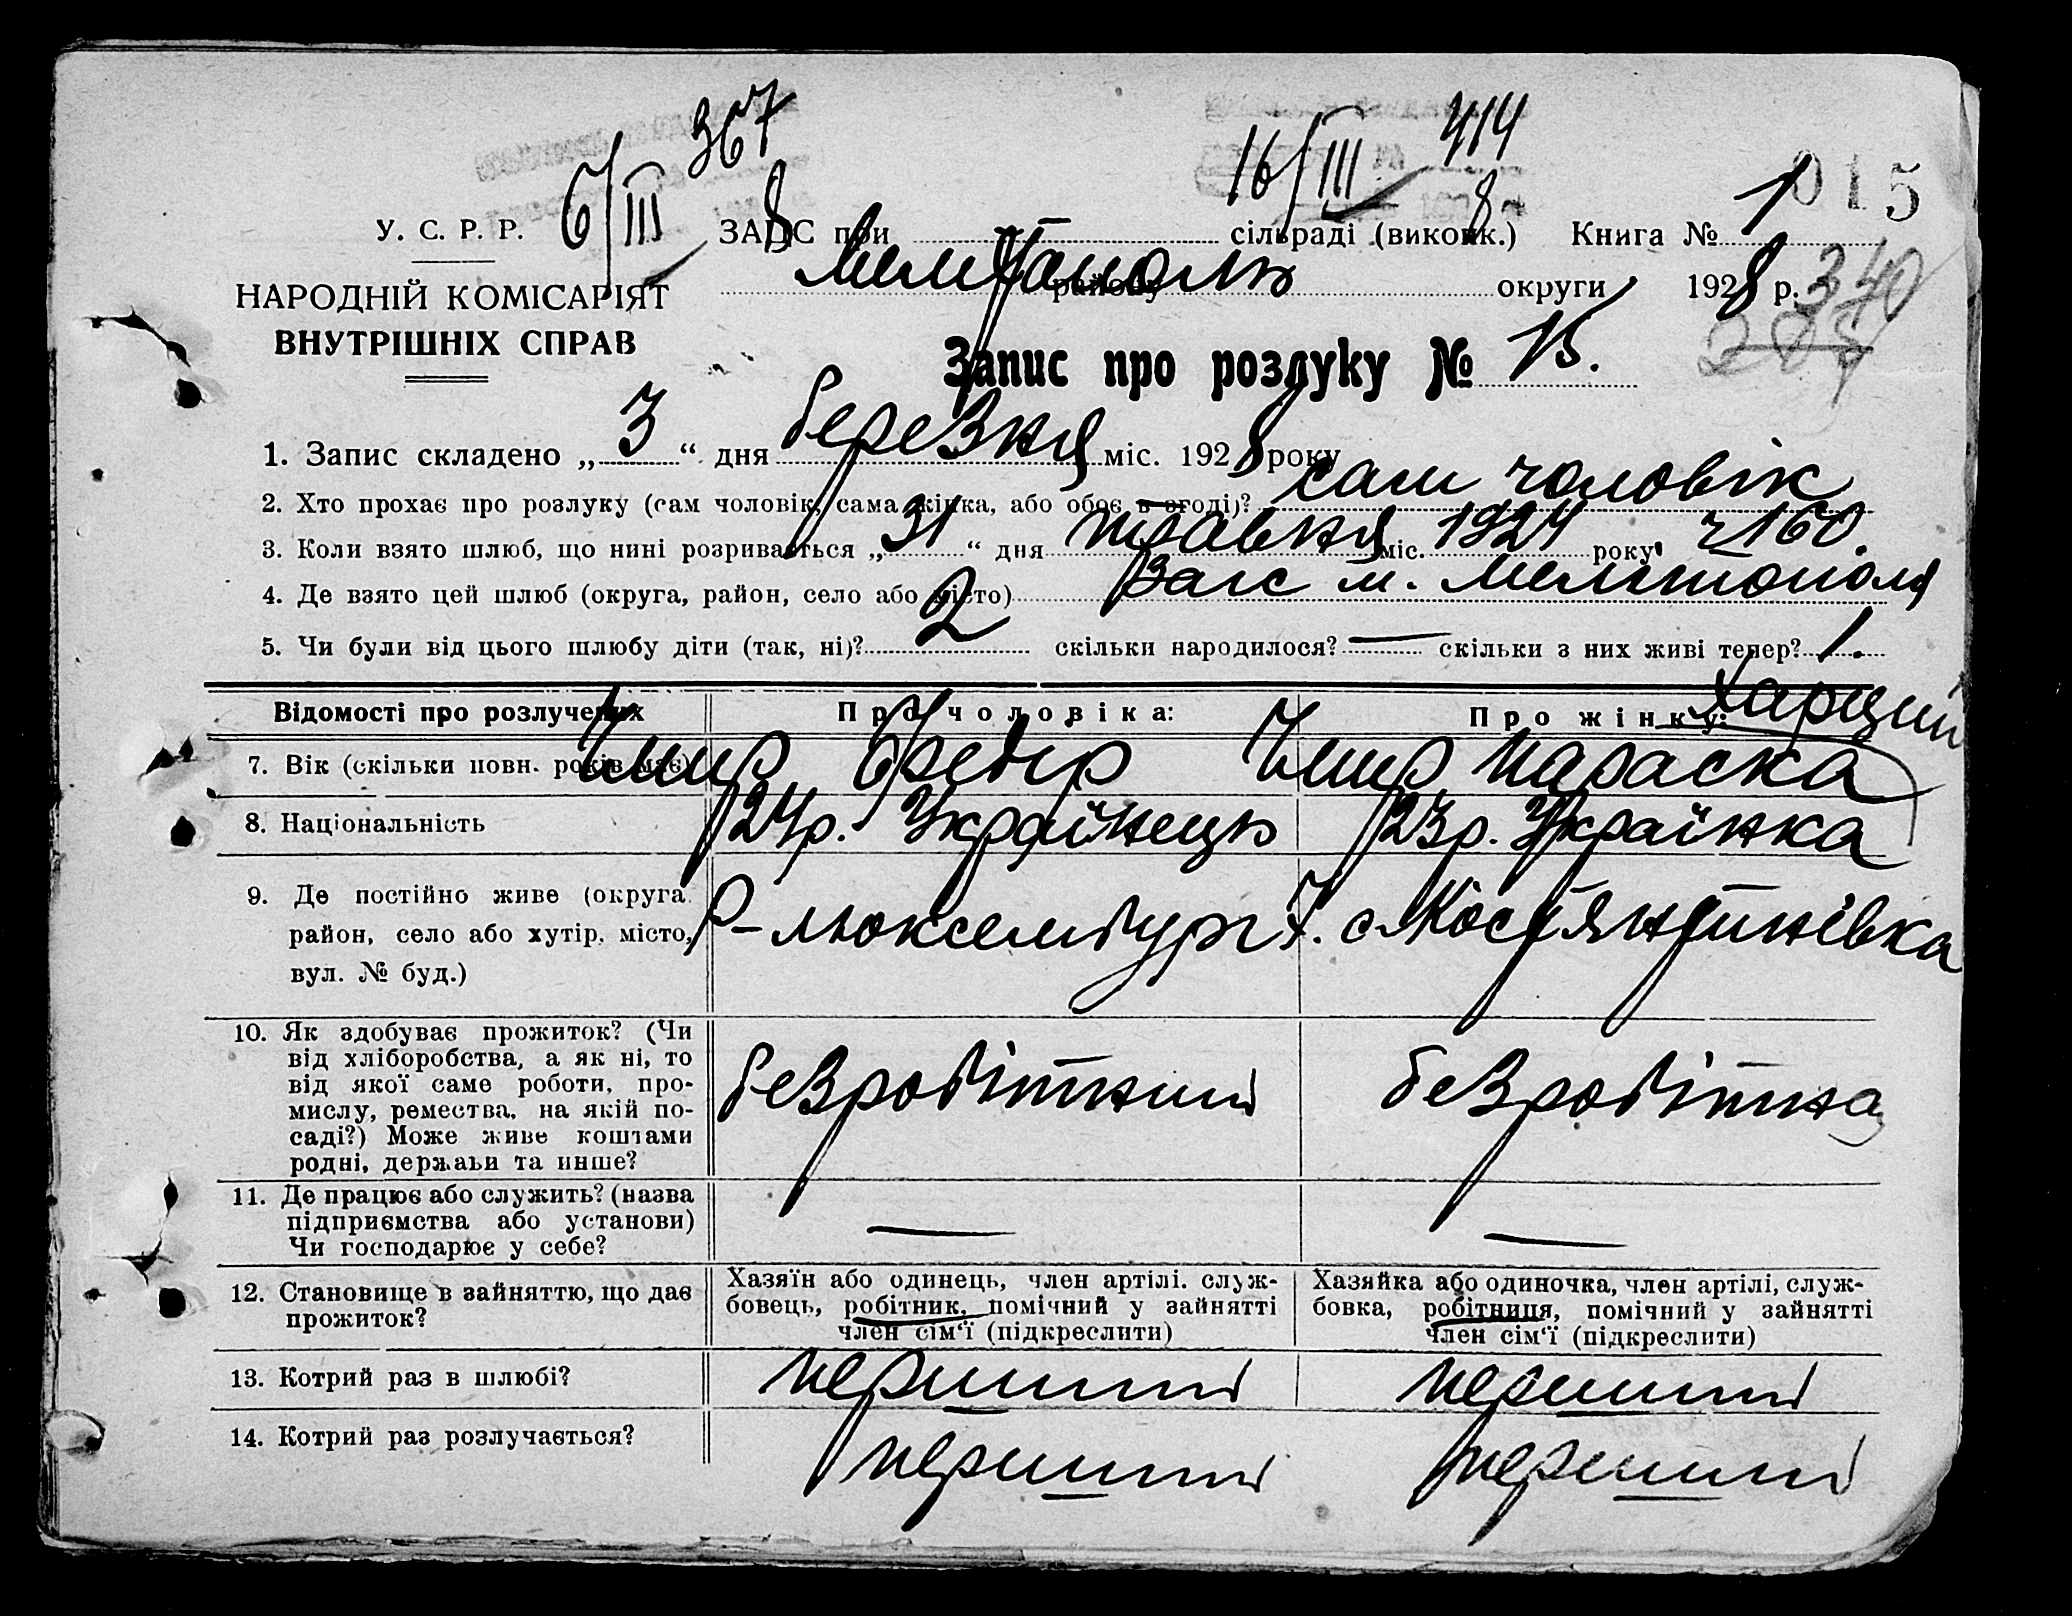 367 414
6/III 8 16/III 8 015
У. С. Р. Р. ЗАГС при сільраді (виконк.) Книга № 1
Мелітополь району округи 1928 р. 340
НАРОДНІЙ КОМІСАРІЯТ
ВНУТРІШНІХ СПРАВ
Запис про розлуку № 15.
1. Запис складено „3“ дня березня міс. 1928 року
2. Хто прохає про розлуку (сам чоловік, сама жінка, або обоє в згоді)? сам чоловік
3. Коли взято шлюб, що нині розривається „31“ дня травня міс. 1924 року ч 160.
4. Де взято цей шлюб (округа, район, село або місто) Загс м. Мелітополя
5. Чи були від цього шлюбу діти (так, ні)? 2 скільки народилося? — скільки з них живі тепер? 1.
Відомості про розлучених Про чоловіка: Про жінку:
7. Вік (скільки повн. років має) Чмир Федір Чмир Параска
8. Національність 24р. Українець 23р. Українка
9. Де постійно живе (округа, район, село або хутір, місто, вул. № буд.) Р-люксембург 7. с. Костянтинівка
10. Як здобуває прожиток? (Чи
від хліборобства, а як ні, то
від якої саме роботи, про-
мислу, ремества, на якій по-
саді?) Може живе коштами
родні, держави та инше?
безробітний безробітна
11. Де працює або служить? (назва
підприємства або установи)
Чи господарює у себе?
— —
12. Становище в зайняттю, що дає
прожиток?
Хазяїн або одинець, член артілі, служ-
бовець, робітник, помічний у зайнятті
член сім‘ї (підкреслити)
Хазяйка або одиночка, член артілі, служ-
бовка, робітниця, помічний у зайнятті
член сім‘ї (підкреслити)
13. Котрий раз в шлюбі? перший перший
14. Котрий раз розлучається? перший перший